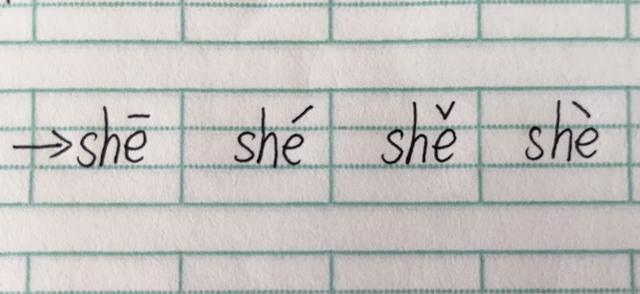 →shē shé shě shè